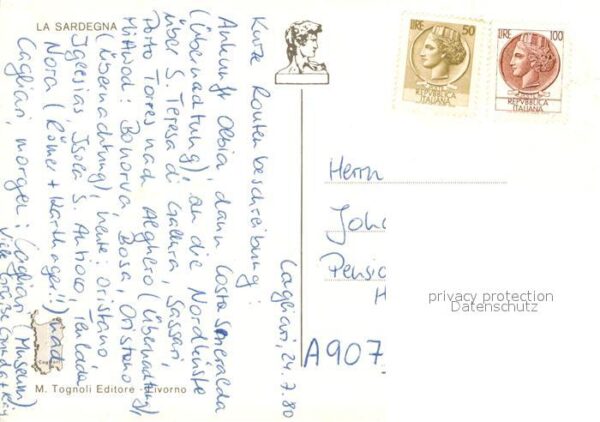 LA SARDEGNA
Cagliari, 24.7.80
Kurze Routenbeschreibung:
Ankunft Olbia, dann Costa Smeralda
(Übernachtung), an die Nordküste
über S. Teresa di Gallura, Sassari,
Porto Torres nach Alghero (Übernachtung),
Mittwoch: Bonorva, Bosa, Oristano
(Übernachtung), heute: Oristano,
Iglesias, Isola S. Antioco, Teulada
Nora (Römer + Karthager!!) und
Cagliari, morgen: Cagliari (Museum)
Viele Grüße
M. Tognoli Editore - Livorno
LIRE 50
REPVBBLICA
ITALIANA
LIRE 100
REPVBBLICA
ITALIANA
Herrn
Joh
Pensio
H
A907
privacy protection
Datenschutz